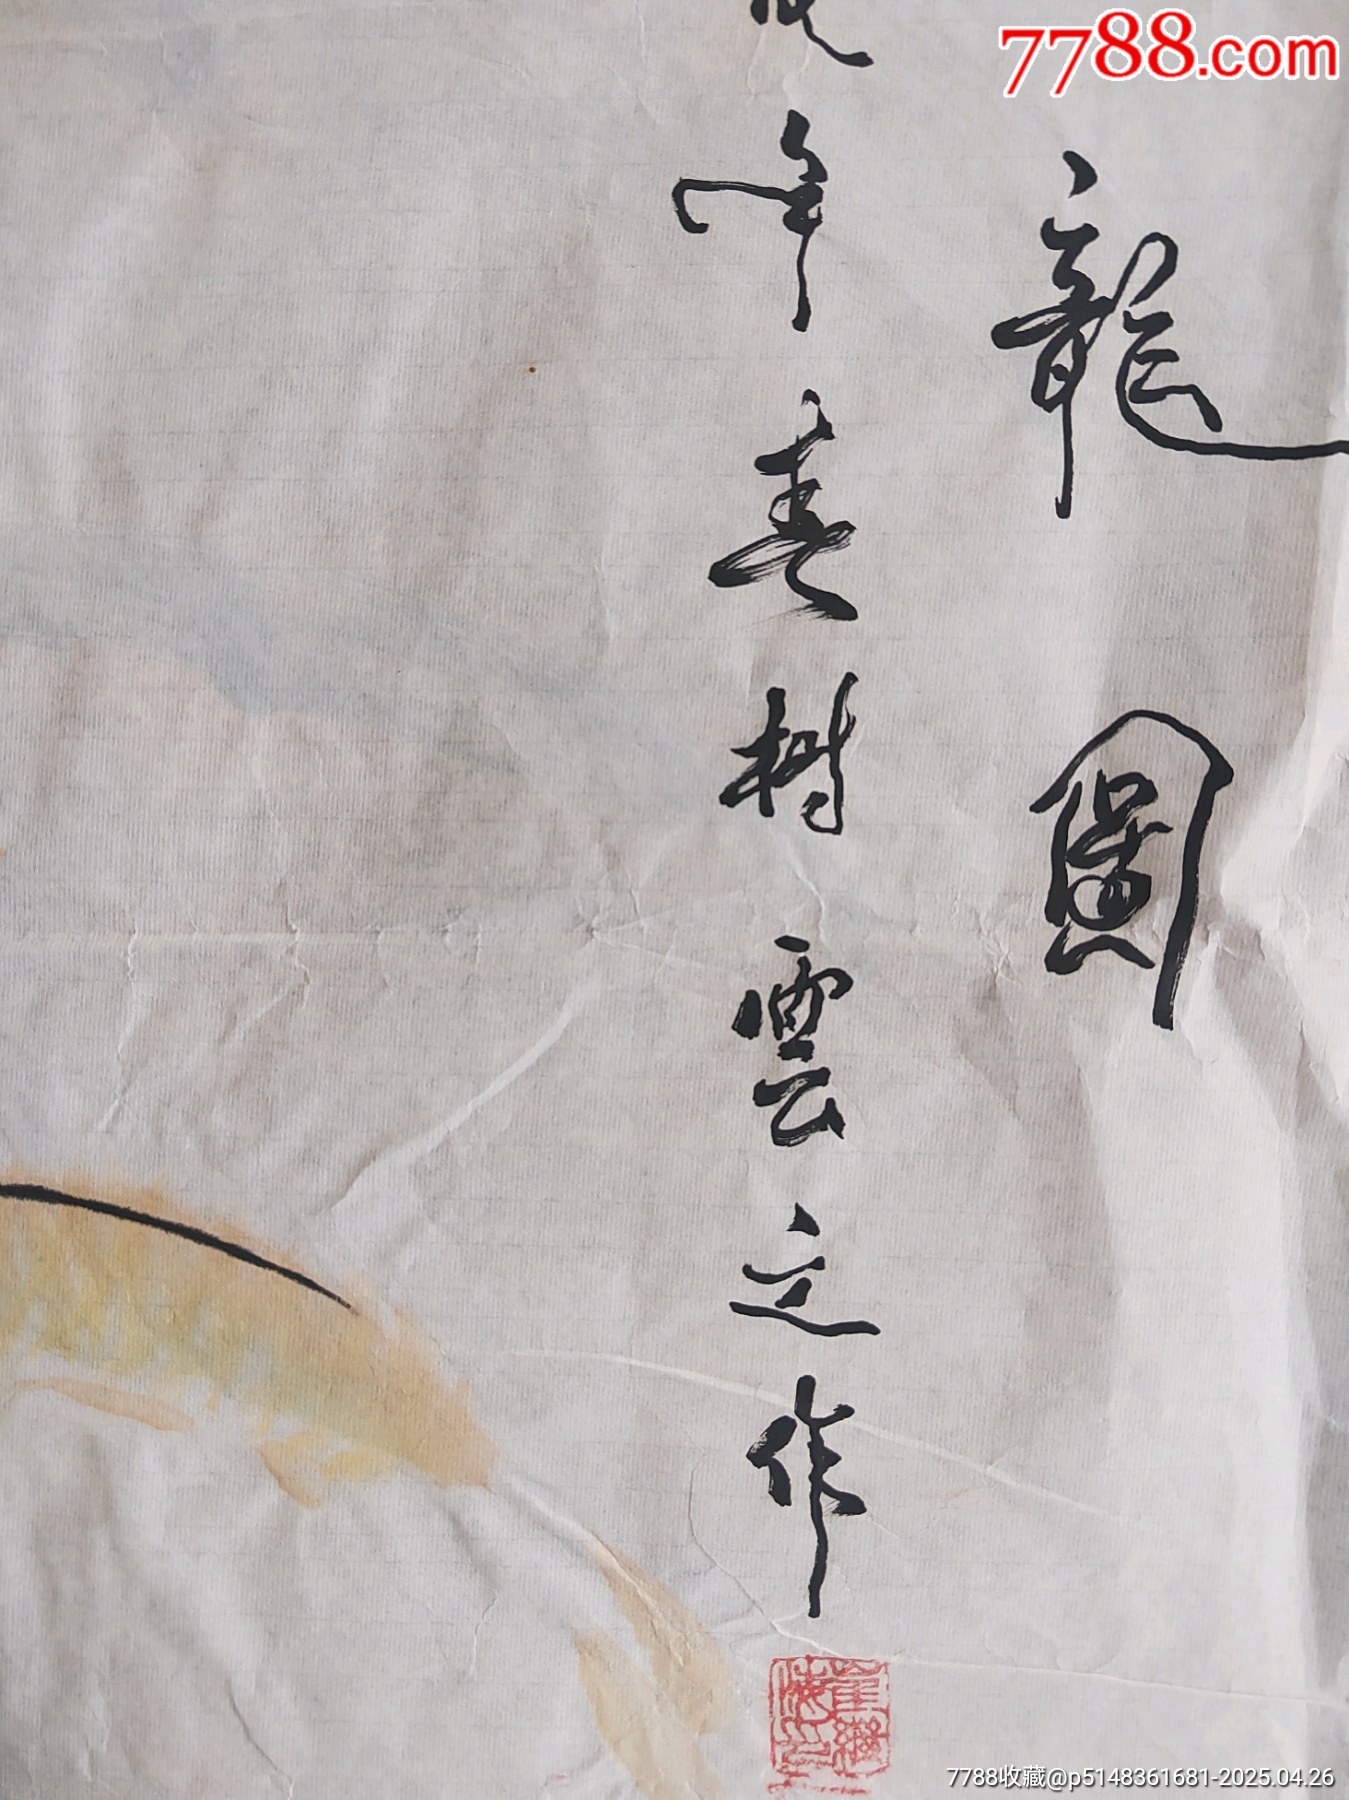 7788.com
龍圖
年春樹雲之作
7788收藏@p5148361681-2025.04.26